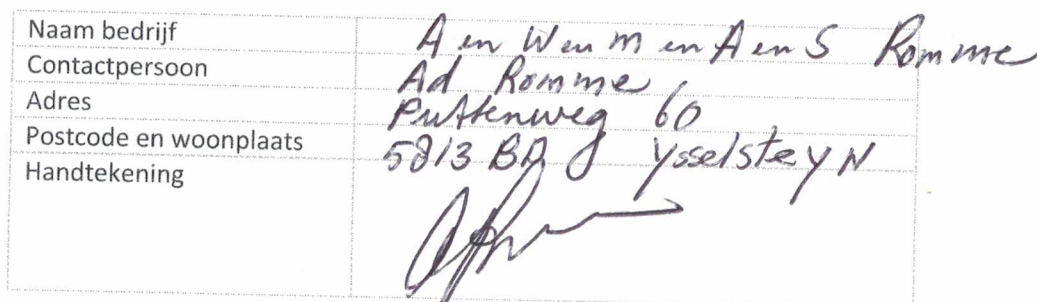 Naam bedrijf A en W en M en A en S Romme
Contactpersoon Ad Romme
Adres Puttenweg 60
Postcode en woonplaats 5813 BD Ysselsteyn
Handtekening